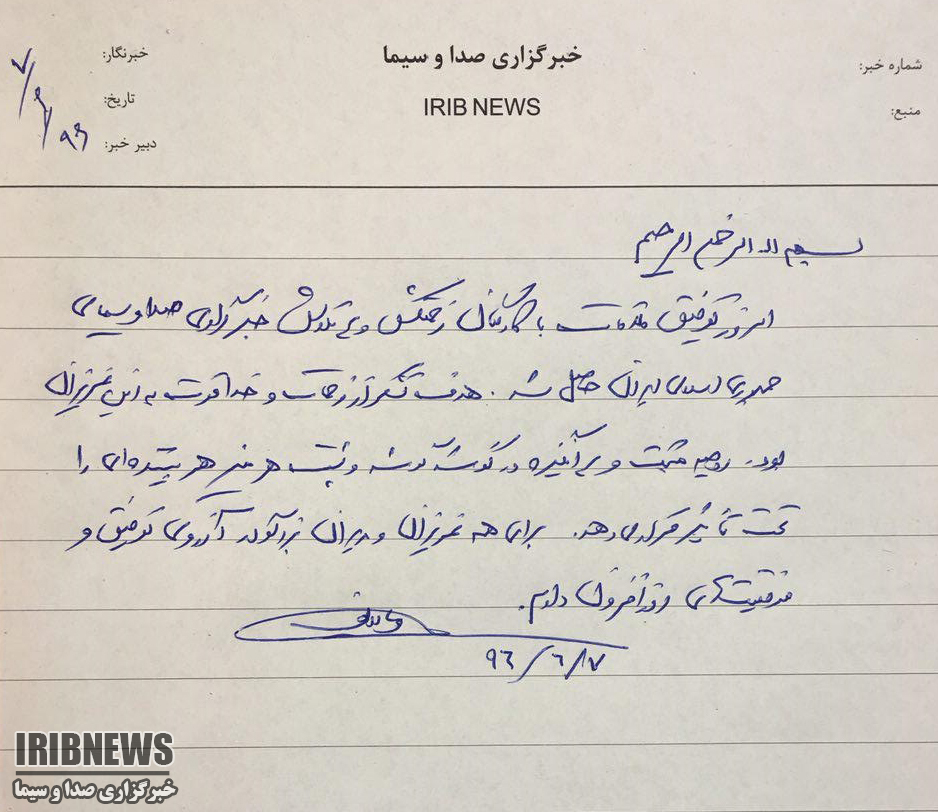 شماره خبر:
منبع:
خبرگزاری صدا و سیما
IRIB NEWS
خبرنگار:
تاریخ:
دبیر خبر:
۹۶/۶/۷
بسم الله الرحمن الرحیم
امروز توفیق ملاقات با کارکنان زحمتکش و پر تلاش خبرگزاری صدا و سیمای
جمهوری اسلامی ایران حاصل شد. هدف تشکر از زحمات و خدا قوت به این عزیزان
بود. روحیه مثبت و پر انگیزه در گوشه گوشه و پشت هر میز هر بیننده‌ای را
تحت تأثیر قرار می دهد. برای همه عزیزان و مدیران آرزوی توفیق و
موفقیت‌های روز افزون دارم.
۹۶/۶/۷
IRIBNEWS
خبرگزاری صدا و سیما